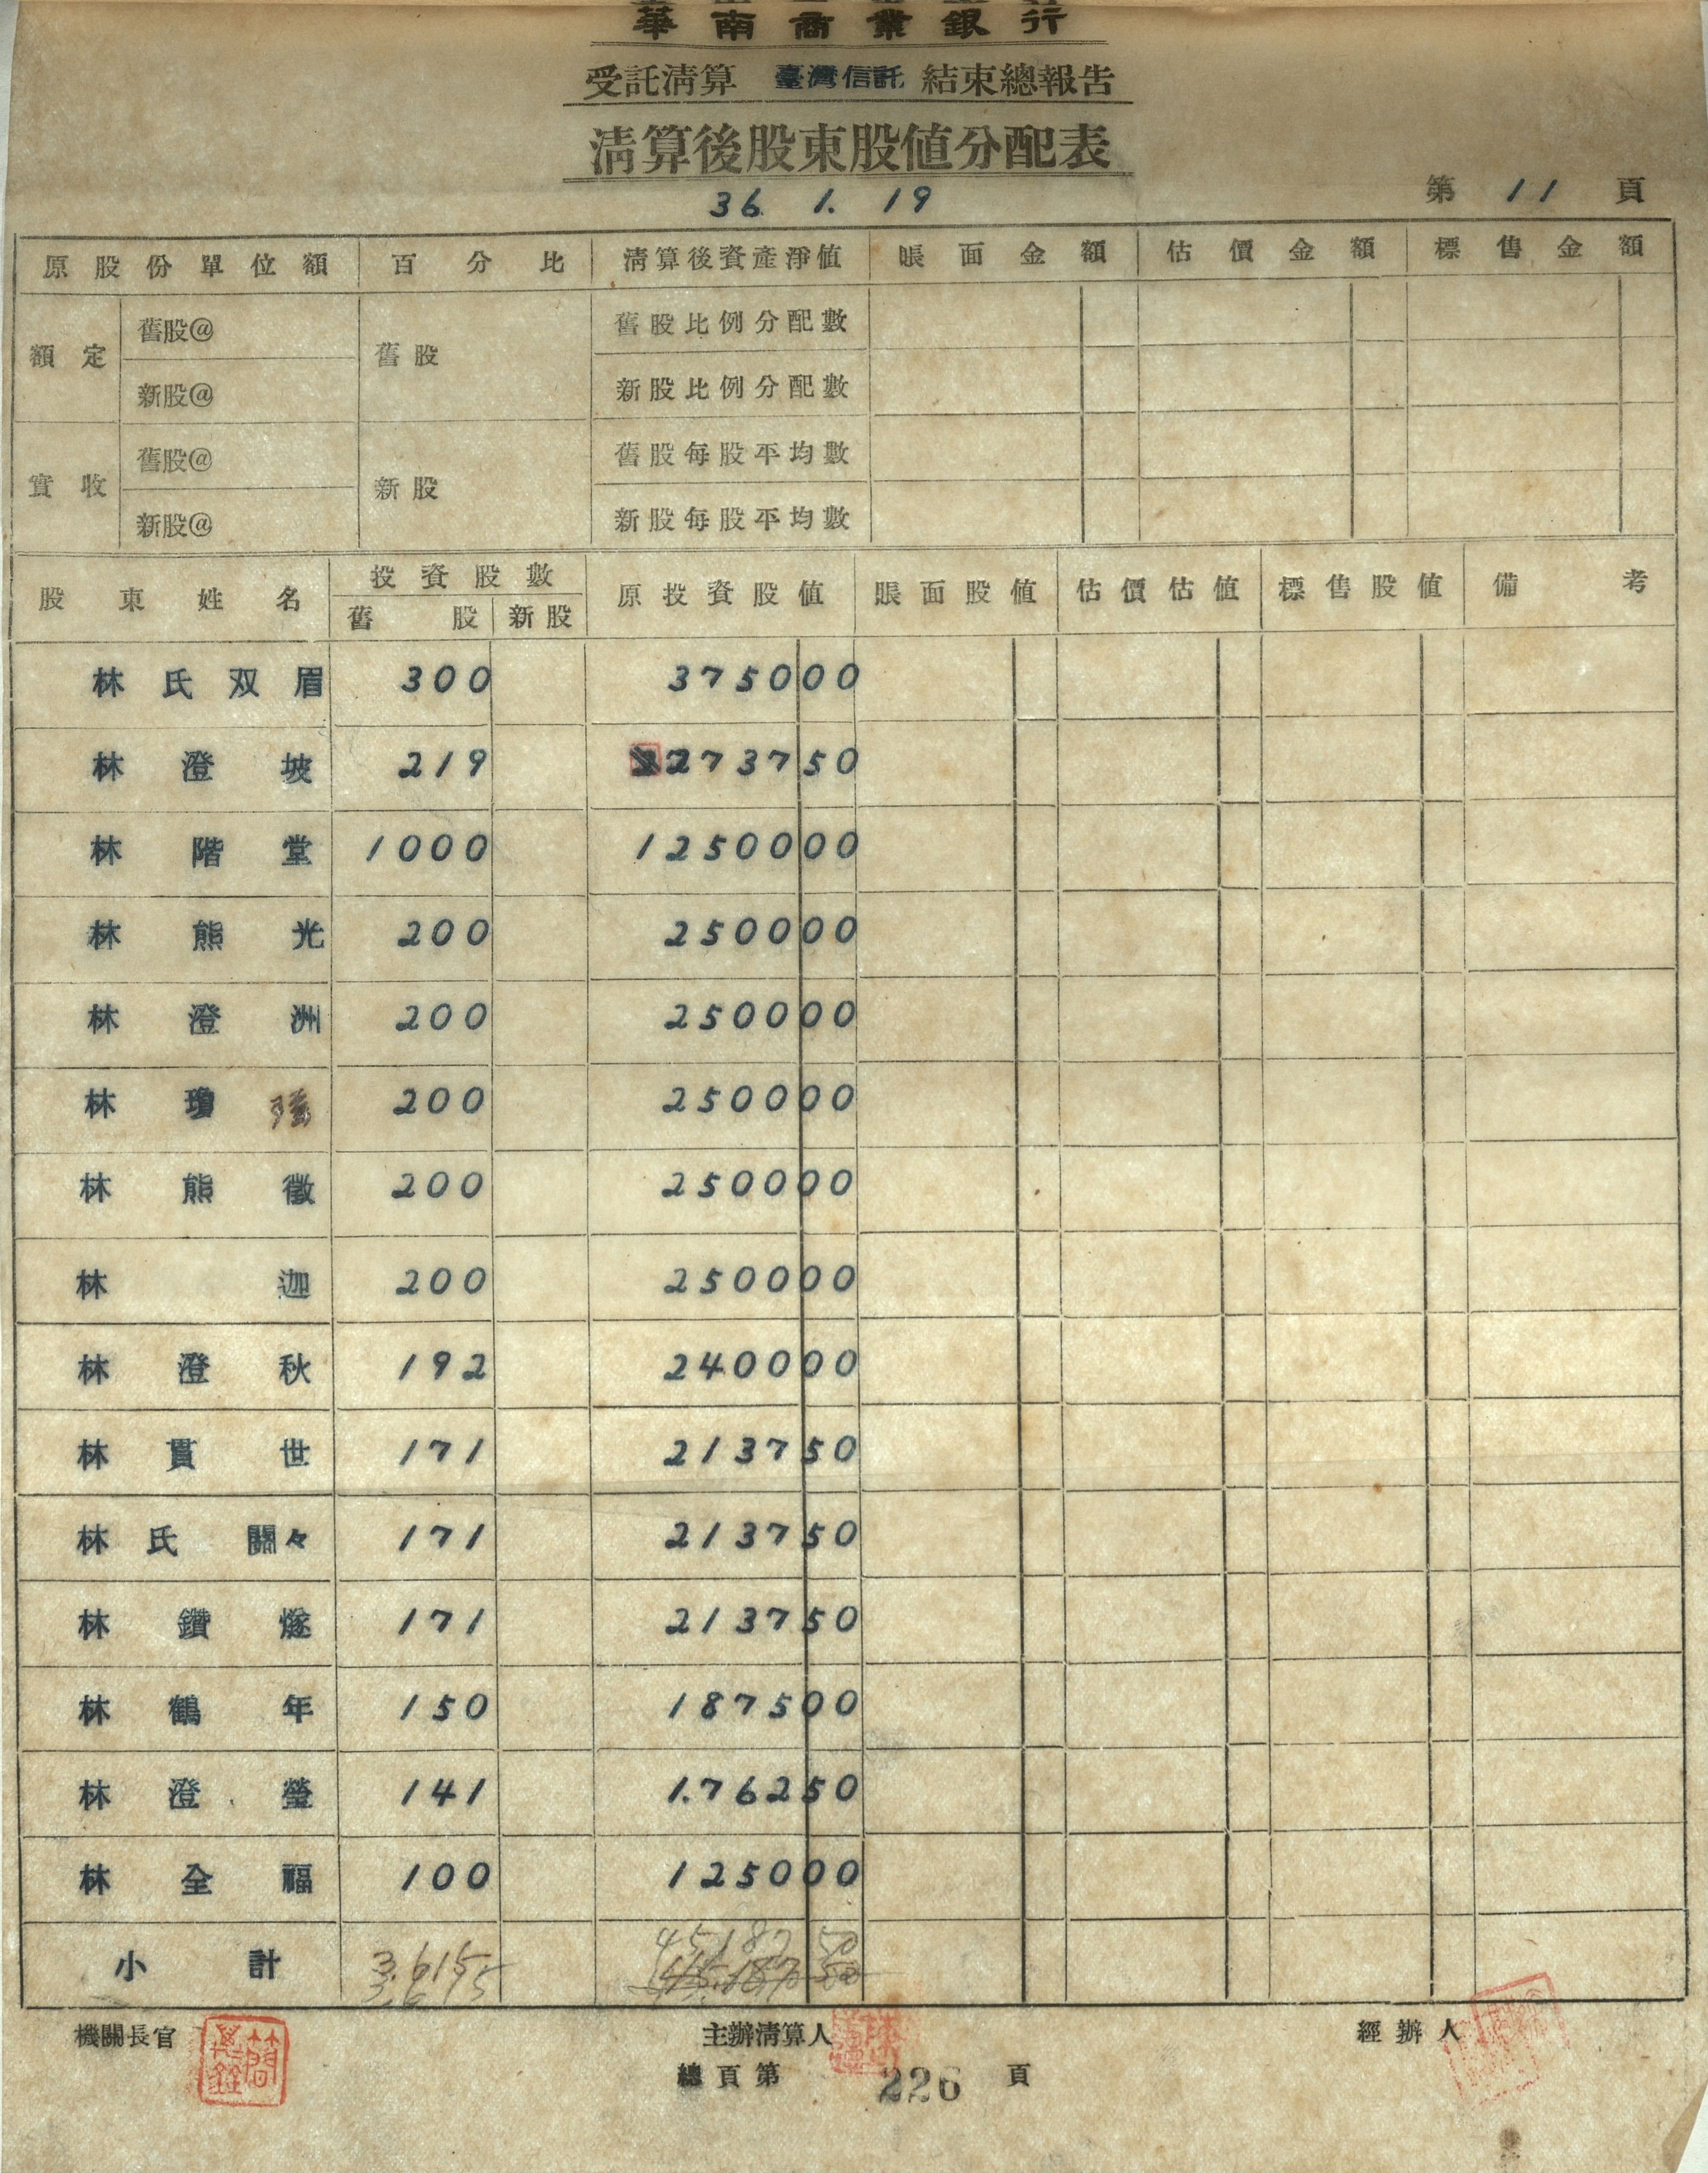 華南商業銀行
受託清算 臺灣信託 結束總報告
清算後股東股值分配表
36. 1. 19
第 11 頁
原股份單位額 百分比 清算後資產淨值 賬面金額 估價金額 標售金額
額定 舊股@ 舊股 舊股比例分配數
新股@ 新股比例分配數
實收 舊股@ 新股 舊股每股平均數
新股@ 新股每股平均數
股東姓名 投資股數 原投資股值 賬面股值 估價估值 標售股值 備考
舊股 新股
林氏双眉 300 375000
林澄坡 219 273750
林階堂 1000 1250000
林熊光 200 250000
林澄洲 200 250000
林瓊 200 250000
林熊徵 200 250000
林迦 200 250000
林澄秋 192 240000
林貫世 171 213750
林氏關々 171 213750
林鑽燧 171 213750
林鶴年 150 187500
林澄瑩 141 1.76250
林全福 100 125000
小計 3.615 45187 50
機關長官 主辦清算人 經辦人
總頁第 226 頁